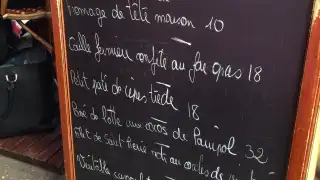 fromage de tête maison 10
Caille fermière confite au foie gras 18
Petit pâté de cèpes tiède 18
de lotte aux cocos de Paimpol 32
de Saint Pierre rôti au